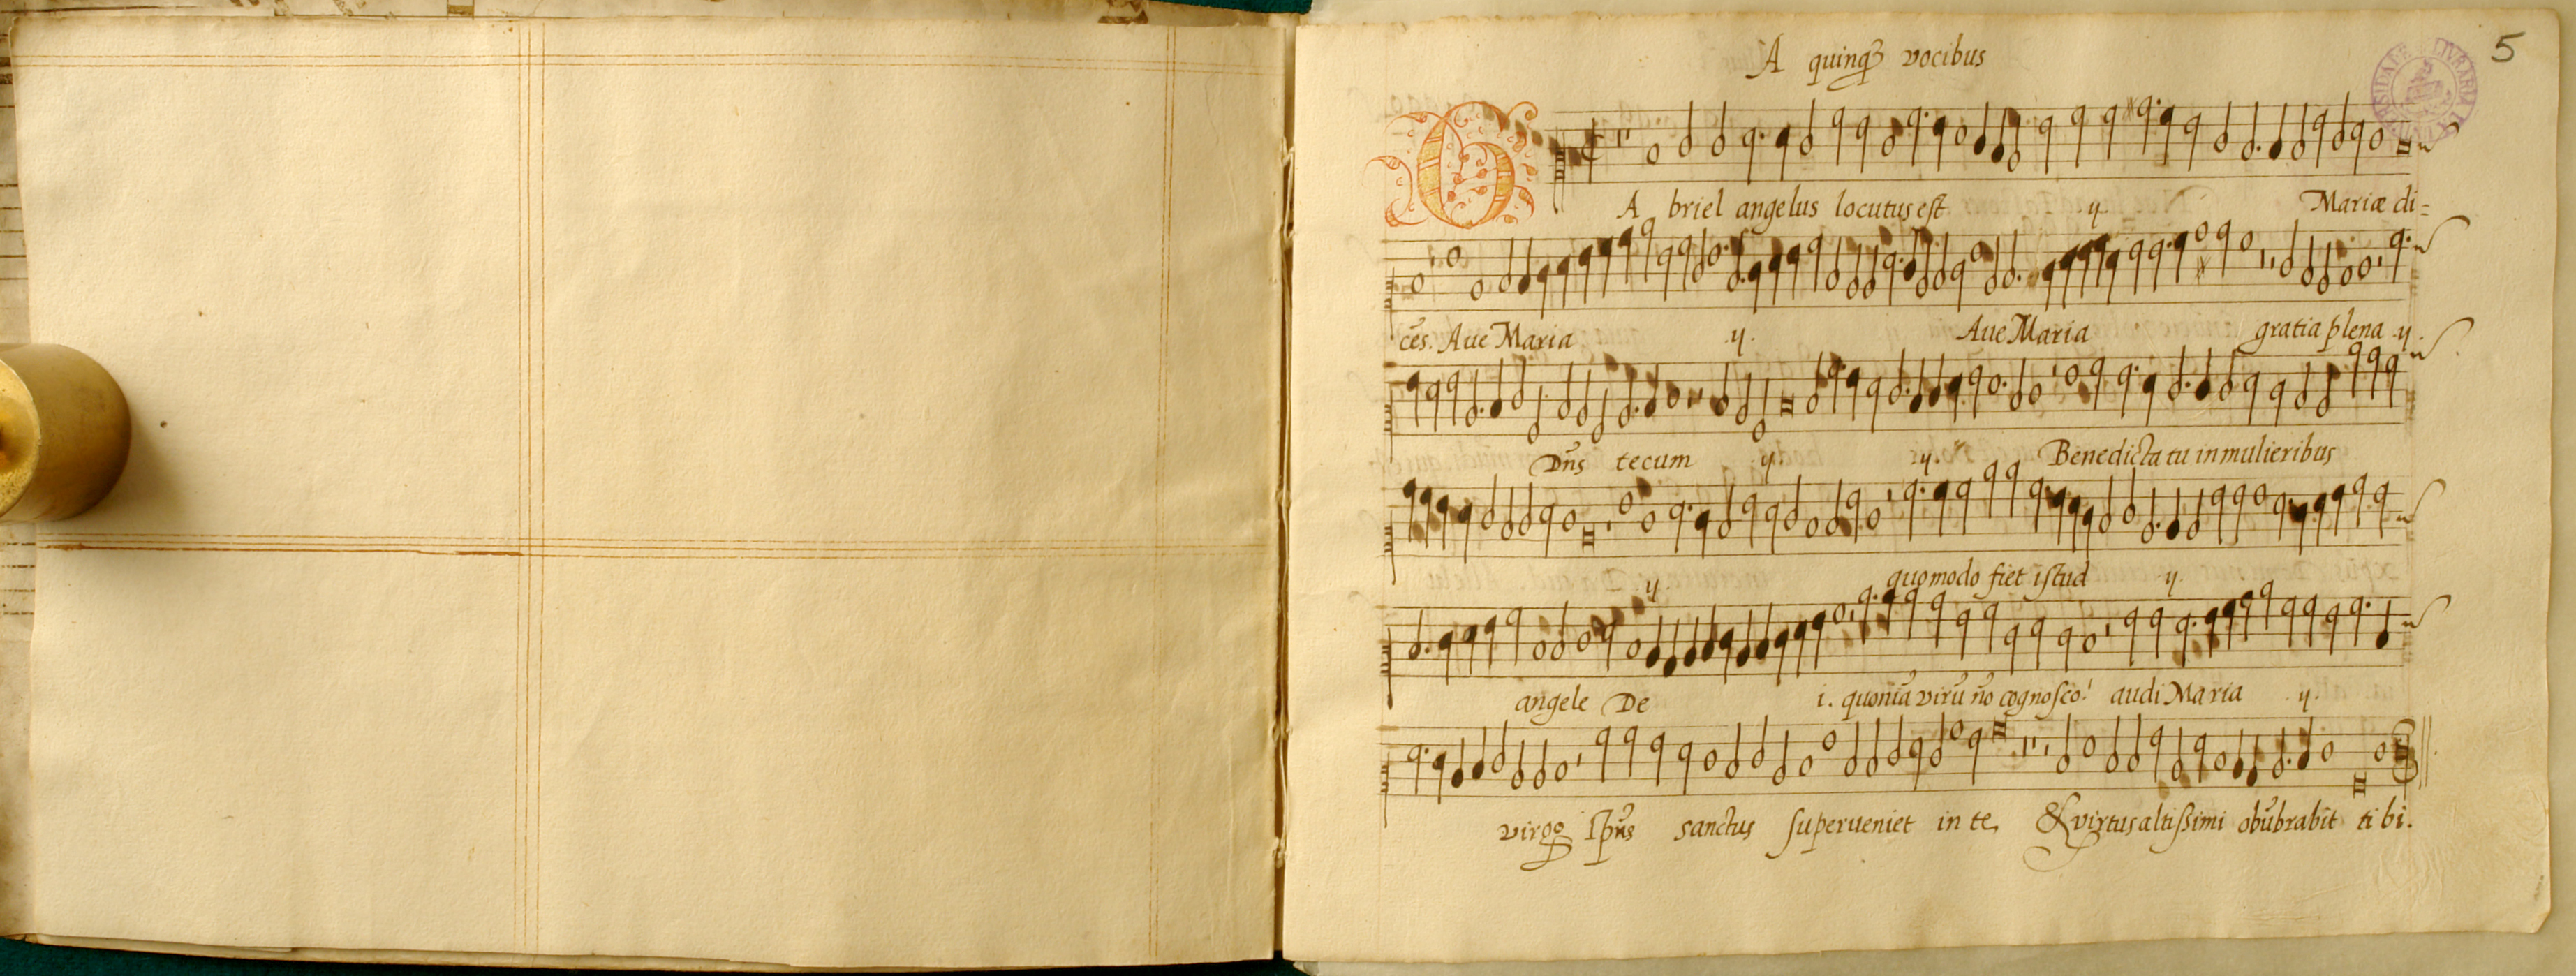 5
A quinq3 vocibus
GA briel angelus locutus est .ij. Mariæ di=
cẽs. Aue Maria .ij. Aue Maria gratia plena .ij.
Dñs tecum .ij. .ij. Benedicta tu in mulieribus
.ij. quomodo fiet istud .ij.
angele De i. quoniã virũ nõ cognosco! audi Maria .ij.
virgo Spũs sanctus superueniet in te, & virtus altissimi obũbrabit tibi.